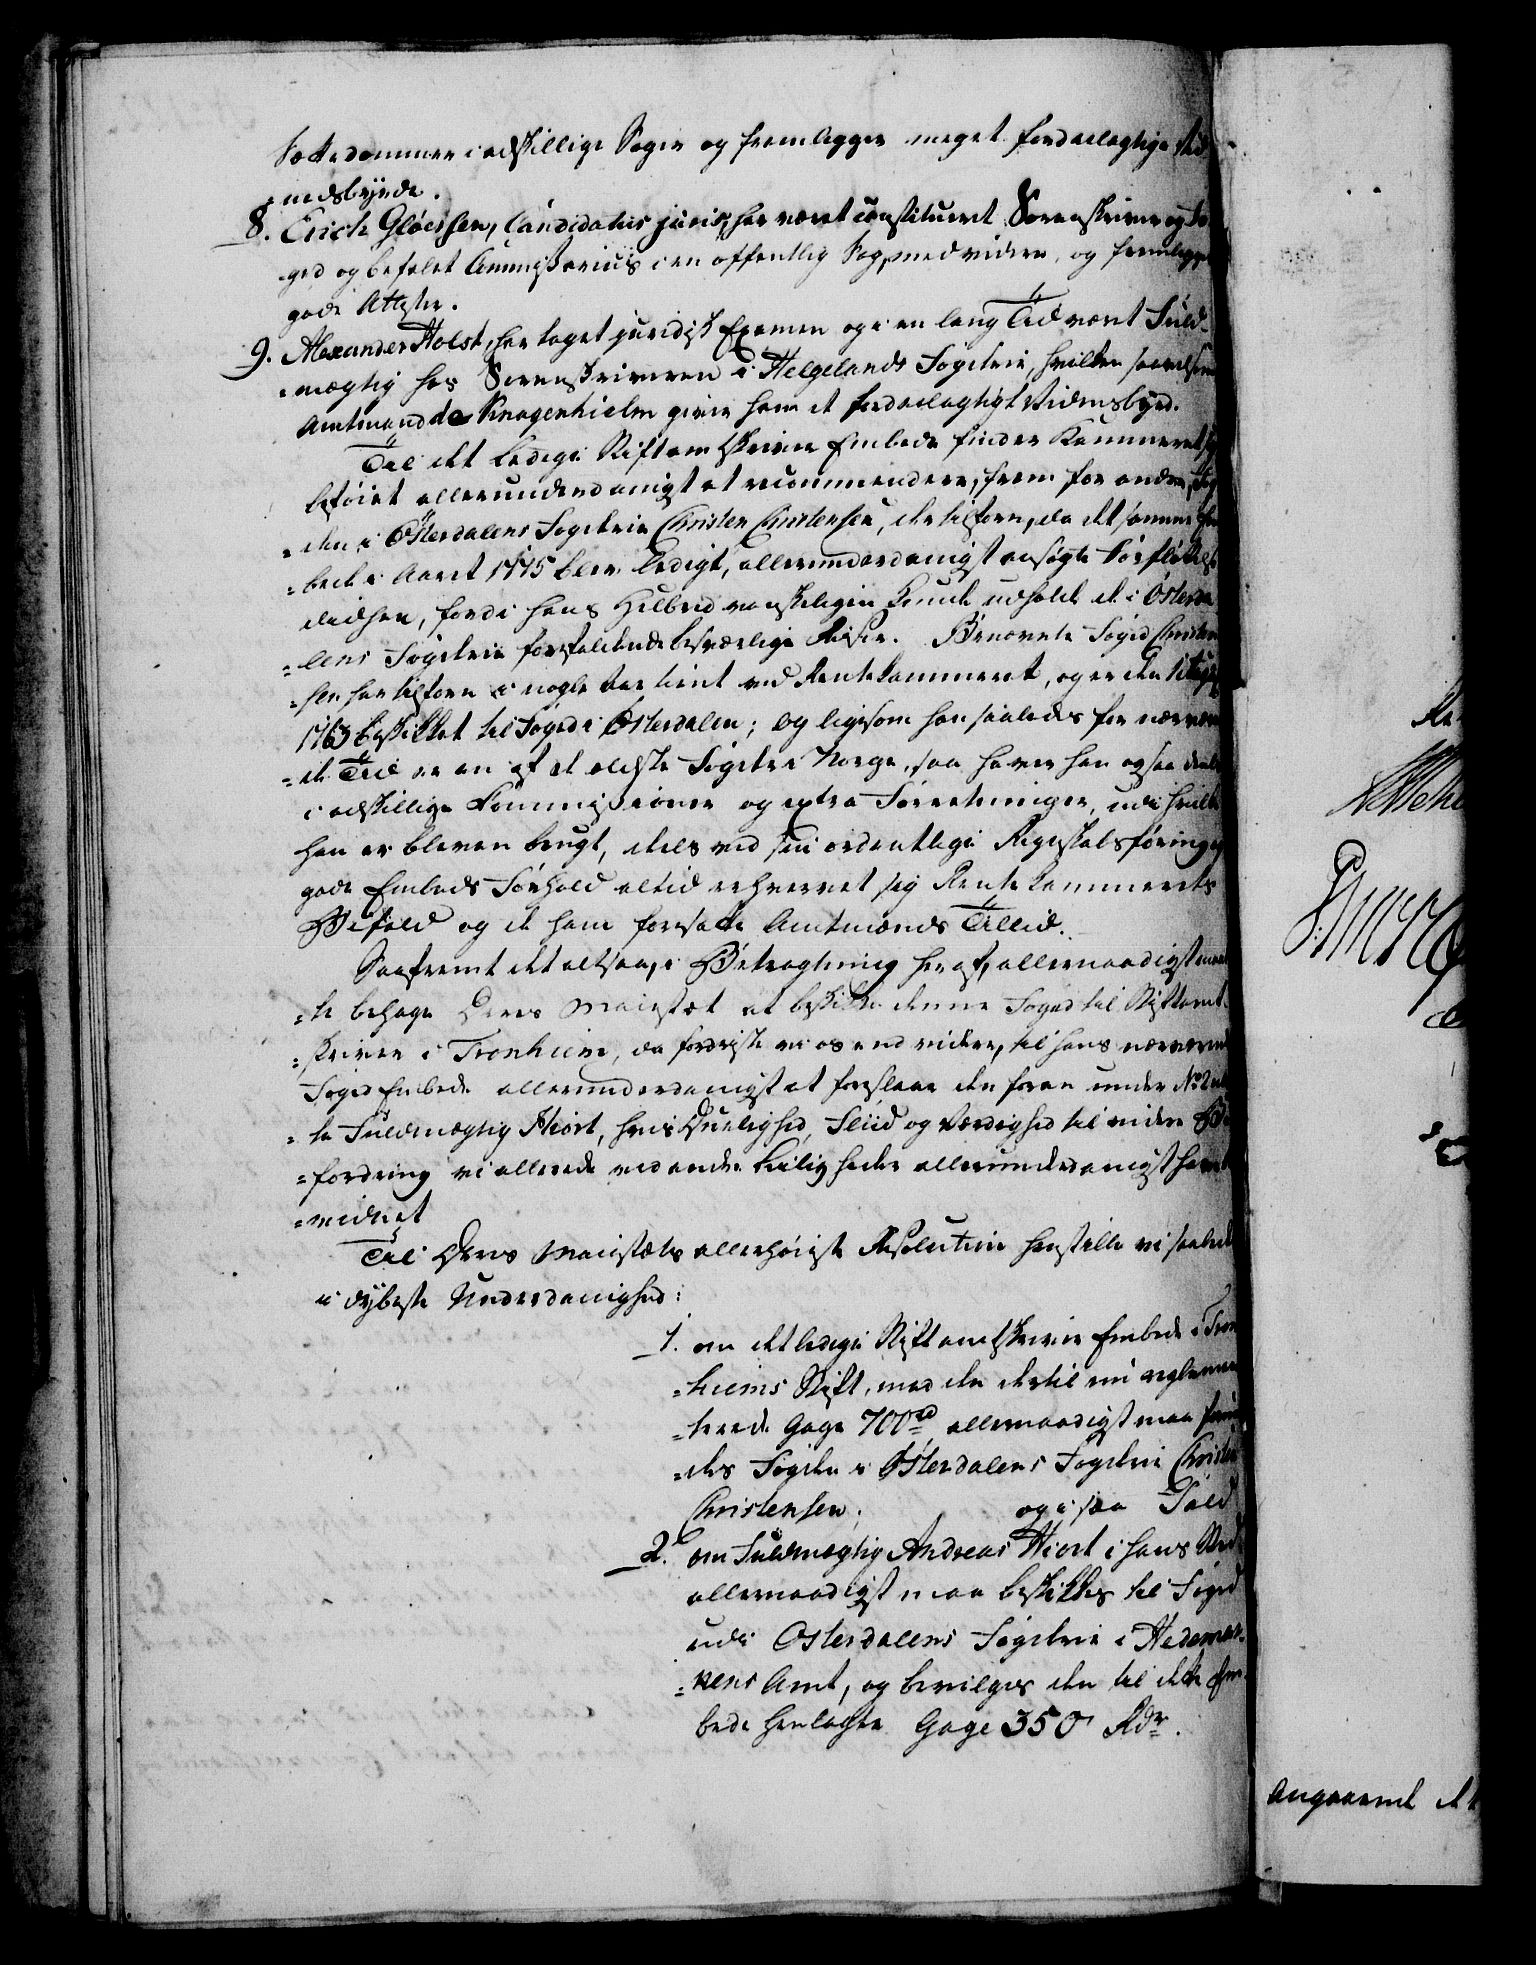 Sættedommer i adskillige Sager og fremlegger meget fordeelagtige Vid-
nedsbyrde.
8. Erich Gløersen, Candidatus juris, har været constitueret Sorenskriver og Fo-
ged og befalet Commissarius i en offentlig Sag, med videre, og fremlegger
gode Attester.
9. Alexander Holst, har taget juridisk Examen og i en lang Tid været Fuld-
mægtig hos Sorenskriveren i Helgelands Fogderie, hvilken saavelsom
Amtmand de Knagenhielm giver ham et fordeelagtigt Vidensbyrd.
Til det ledige Stiftamtskriver Embede finder Kammeret sig
beføiet allerunderdanigst at recommendere, frem for andre, Fog-
=den i Østerdalens Fogderie Christen Christensen, der tilforn, da det samme Em-
=bede i Aaret 1775 blev ledigt, allerunderdanigst ansøgte Forflyttelse
derhen, fordi hans Helbred vanskeligen kunde udholde de i Østerda-
=lens Fogderie forefaldende besværlige Reiser. Benævnte Foged Christen-
=sen har tilforn i nogle Aar tient ved Rentekammeret, og er den
1763 beskikket til Foged i Østerdalen; og ligesom han saaledes for nærværen-
=de Tid er en af de ældste Fogder i Norge, saa haver han ogsaa deels
i adskillige Commissioner og extra Forretninger, udi hvilke
han er bleven brugt, deels ved sin ordentlige Regnskabsføring og
gode Embeds Forhold altid erhvervet sig Rentekammerets
Bifald og de ham foresatte Amtmænds Tillid.
Saafremt det altsaa, i Betragtning heraf, allernaadigst maat-
=te behage Deres Maiestæt at beskikke denne Foged til Stiftamt-
=skriver i Tronhiem, da fordriste vi os end videre, til hans nærværende
Foged Embede allerunderdanigst at foreslaae den foran under No 2
Fuldmægtig Hiort, hvis Duelighed, Fliid og Værdighed til videre Be-
=fordring vi allerede ved andre Leiligheder allerunderdanigst have be-
=vidnet
Til Deres Maiestæts allerhøieste Resolution henstille vi saaledes
i dybeste Underdanighed:
1. om det ledige Stiftamtskriver Embede i Tron-
=hiems Stift, med den dertil nu reglemen-
=terede Gage 700 rd allernaadigst maa forun-
=des Fogden i Østerdalens Fogderie Christen
Christensen; og i saa Fald
2. om Fuldmægtig Andreas Hiort i hans Sted
allernaadigst maa beskikkes til Foged
udi Østerdalens Fogderie i Hedemar-
=kens Amt, og bevilges den til dette Em-
bede henlagte Gage 350 Rdr.
Angaaende det